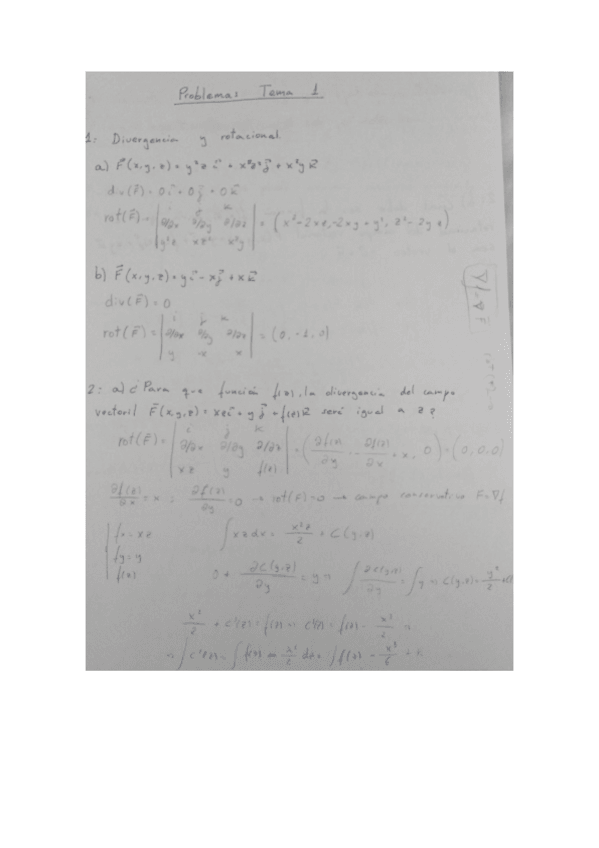 Problemas Tema 1
1: Divergencia y rotacional
a) F⃗(x,y,z) = y²z i⃗ + x²z² j⃗ + x²y k⃗
div(F⃗) = 0i⃗ + 0j⃗ + 0k⃗
rot(F⃗) = | i j k ; ∂/∂x ∂/∂y ∂/∂z ; y²z xz² x²y | = (x² - 2xz, -2xy + y², z² - 2yz)
b) F⃗(x,y,z) = y i⃗ - x j⃗ + x k⃗
div(F⃗) = 0
rot(F⃗) = | i j k ; ∂/∂x ∂/∂y ∂/∂z ; y -x x | = (0, -1, 0)
2: a) ¿Para que función f(z), la divergencia del campo
vectoril F⃗(x,y,z) = xz i⃗ + y j⃗ + f(z) k⃗ será igual a z?
rot(F⃗) = | i j k ; ∂/∂x ∂/∂y ∂/∂z ; xz y f(z) | = (∂f(z)/∂y, -∂f(z)/∂x + x, 0) = (0,0,0)
∂f(z)/∂x = x ; ∂f(z)/∂y = 0 → rot(F) = 0 → campo conservativo F = ∇f
fx = xz ∫ xz dx = x²z/2 + C(y,z)
fy = y
f(z) 0 + ∂C(y,z)/∂y = y ∫ ∂C(y,z)/∂y = ∫ y C(y,z) = y²/2
x²/2 + C'(z) = f(z) C'(z) = f(z) - x²/2
∫ C'(z) = ∫ f(z) x²/2 dz = ∫ f(z)